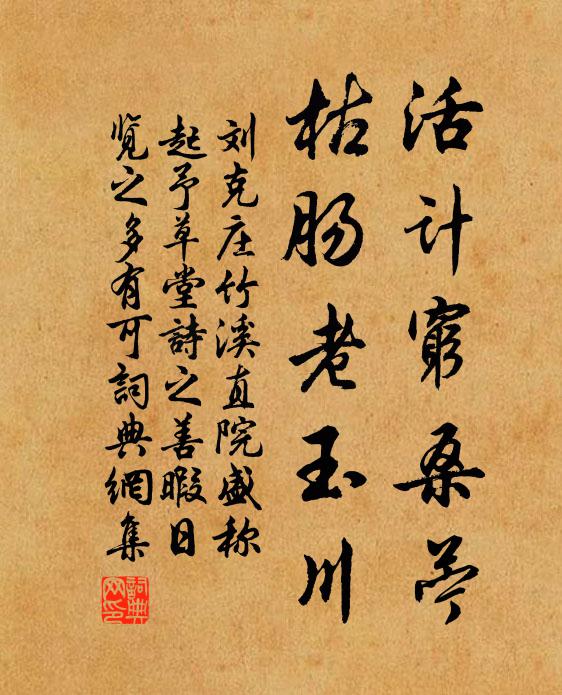 活计窮桑苎
枯肠老玉川
刘克庄竹溪直院盛称
起予草堂詩之善暇日
览之多有可詞典網集
詞典
网印